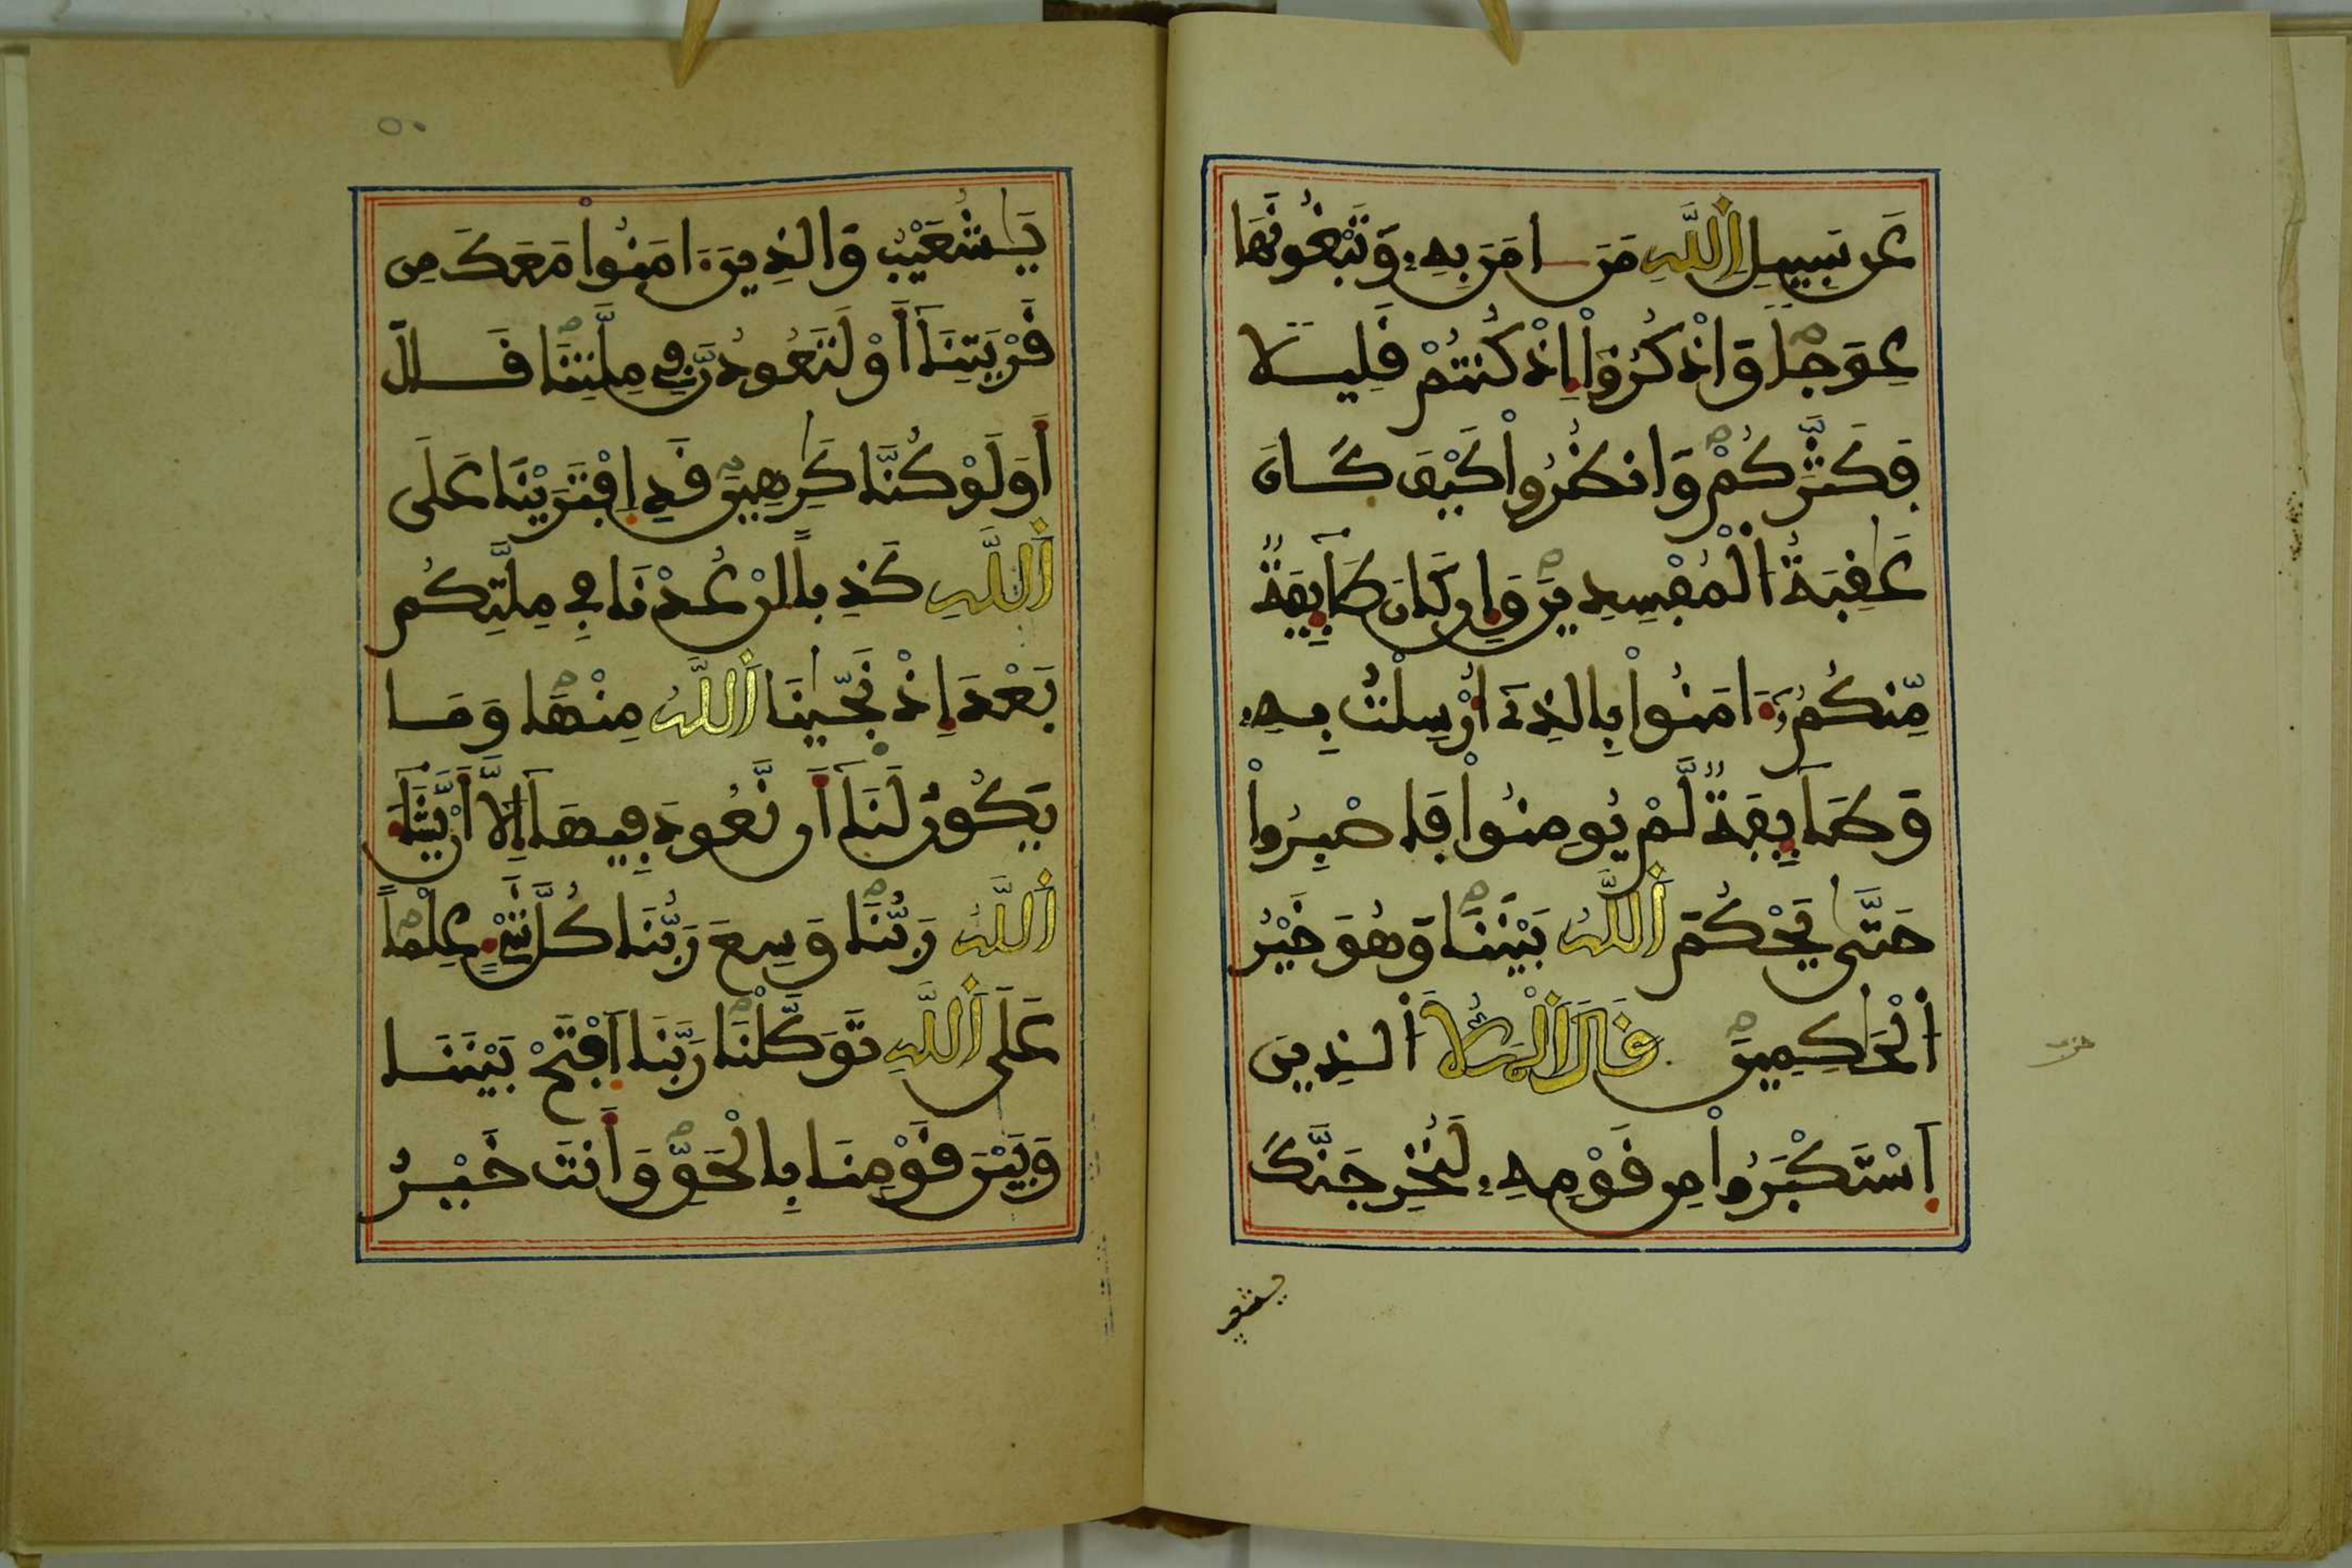 عَن سَبِيلِ اِ۬للَّهِ مَنَ اٰمَنَ بِهِۦ وَتَبْغُونَهَا
عِوَجاٗ وَاذْكُرُوٓاْ إِذْ كُنتُمْ قَلِيلاٗ
فَكَثَّرَكُمْ وَانظُرُواْ كَيْفَ كَانَ
عَٰقِبَةُ اُ۬لْمُفْسِدِينَ وَإِن كَانَ طَآئِفَةٞ
مِّنكُمُۥٓ ءَامَنُواْ بِالذِےٓ أُرْسِلْتُ بِهِۦ
وَطَآئِفَةٞ لَّمْ يُومِنُواْ فَاصْبِرُواْ
حَتَّىٰ يَحْكُمَ اَ۬للَّهُ بَيْنَنَا وَهُوَ خَيْرُ
اُ۬لْحَٰكِمِينَ قَالَ اَ۬لْمَلَأُ اُ۬لذِينَ
اَ۪سْتَكْبَرُواْ مِن قَوْمِهِۦ لَنُخْرِجَنَّكَ
يشعيب
٥٠
يَٰشُعَيْبُ وَالذِينَ ءَامَنُواْ مَعَكَ مِن
قَرْيَتِنَآ أَوْ لَتَعُودُنَّ فِے مِلَّتِنَا قَالَ
أَوَلَوْ كُنَّا كَٰرِهِينَ قَدِ اِ۪فْتَرَيْنَا عَلَى
اَ۬للَّهِ كَذِباً اِنْ عُدْنَا فِے مِلَّتِكُم
بَعْدَ إِذْ نَجَّيٰنَا اَ۬للَّهُ مِنْهَا وَمَا
يَكُونُ لَنَآ أَن نَّعُودَ فِيهَآ إِلَّآ أَنْ يَّشَآءَ
اَ۬للَّهُ رَبُّنَا وَسِعَ رَبُّنَا كُلَّ شَےْءٍ عِلْماً
عَلَى اَ۬للَّهِ تَوَكَّلْنَا رَبَّنَا اَ۪فْتَحْ بَيْنَنَا
وَبَيْنَ قَوْمِنَا بِالْحَقِّ وَأَنتَ خَيْرُ